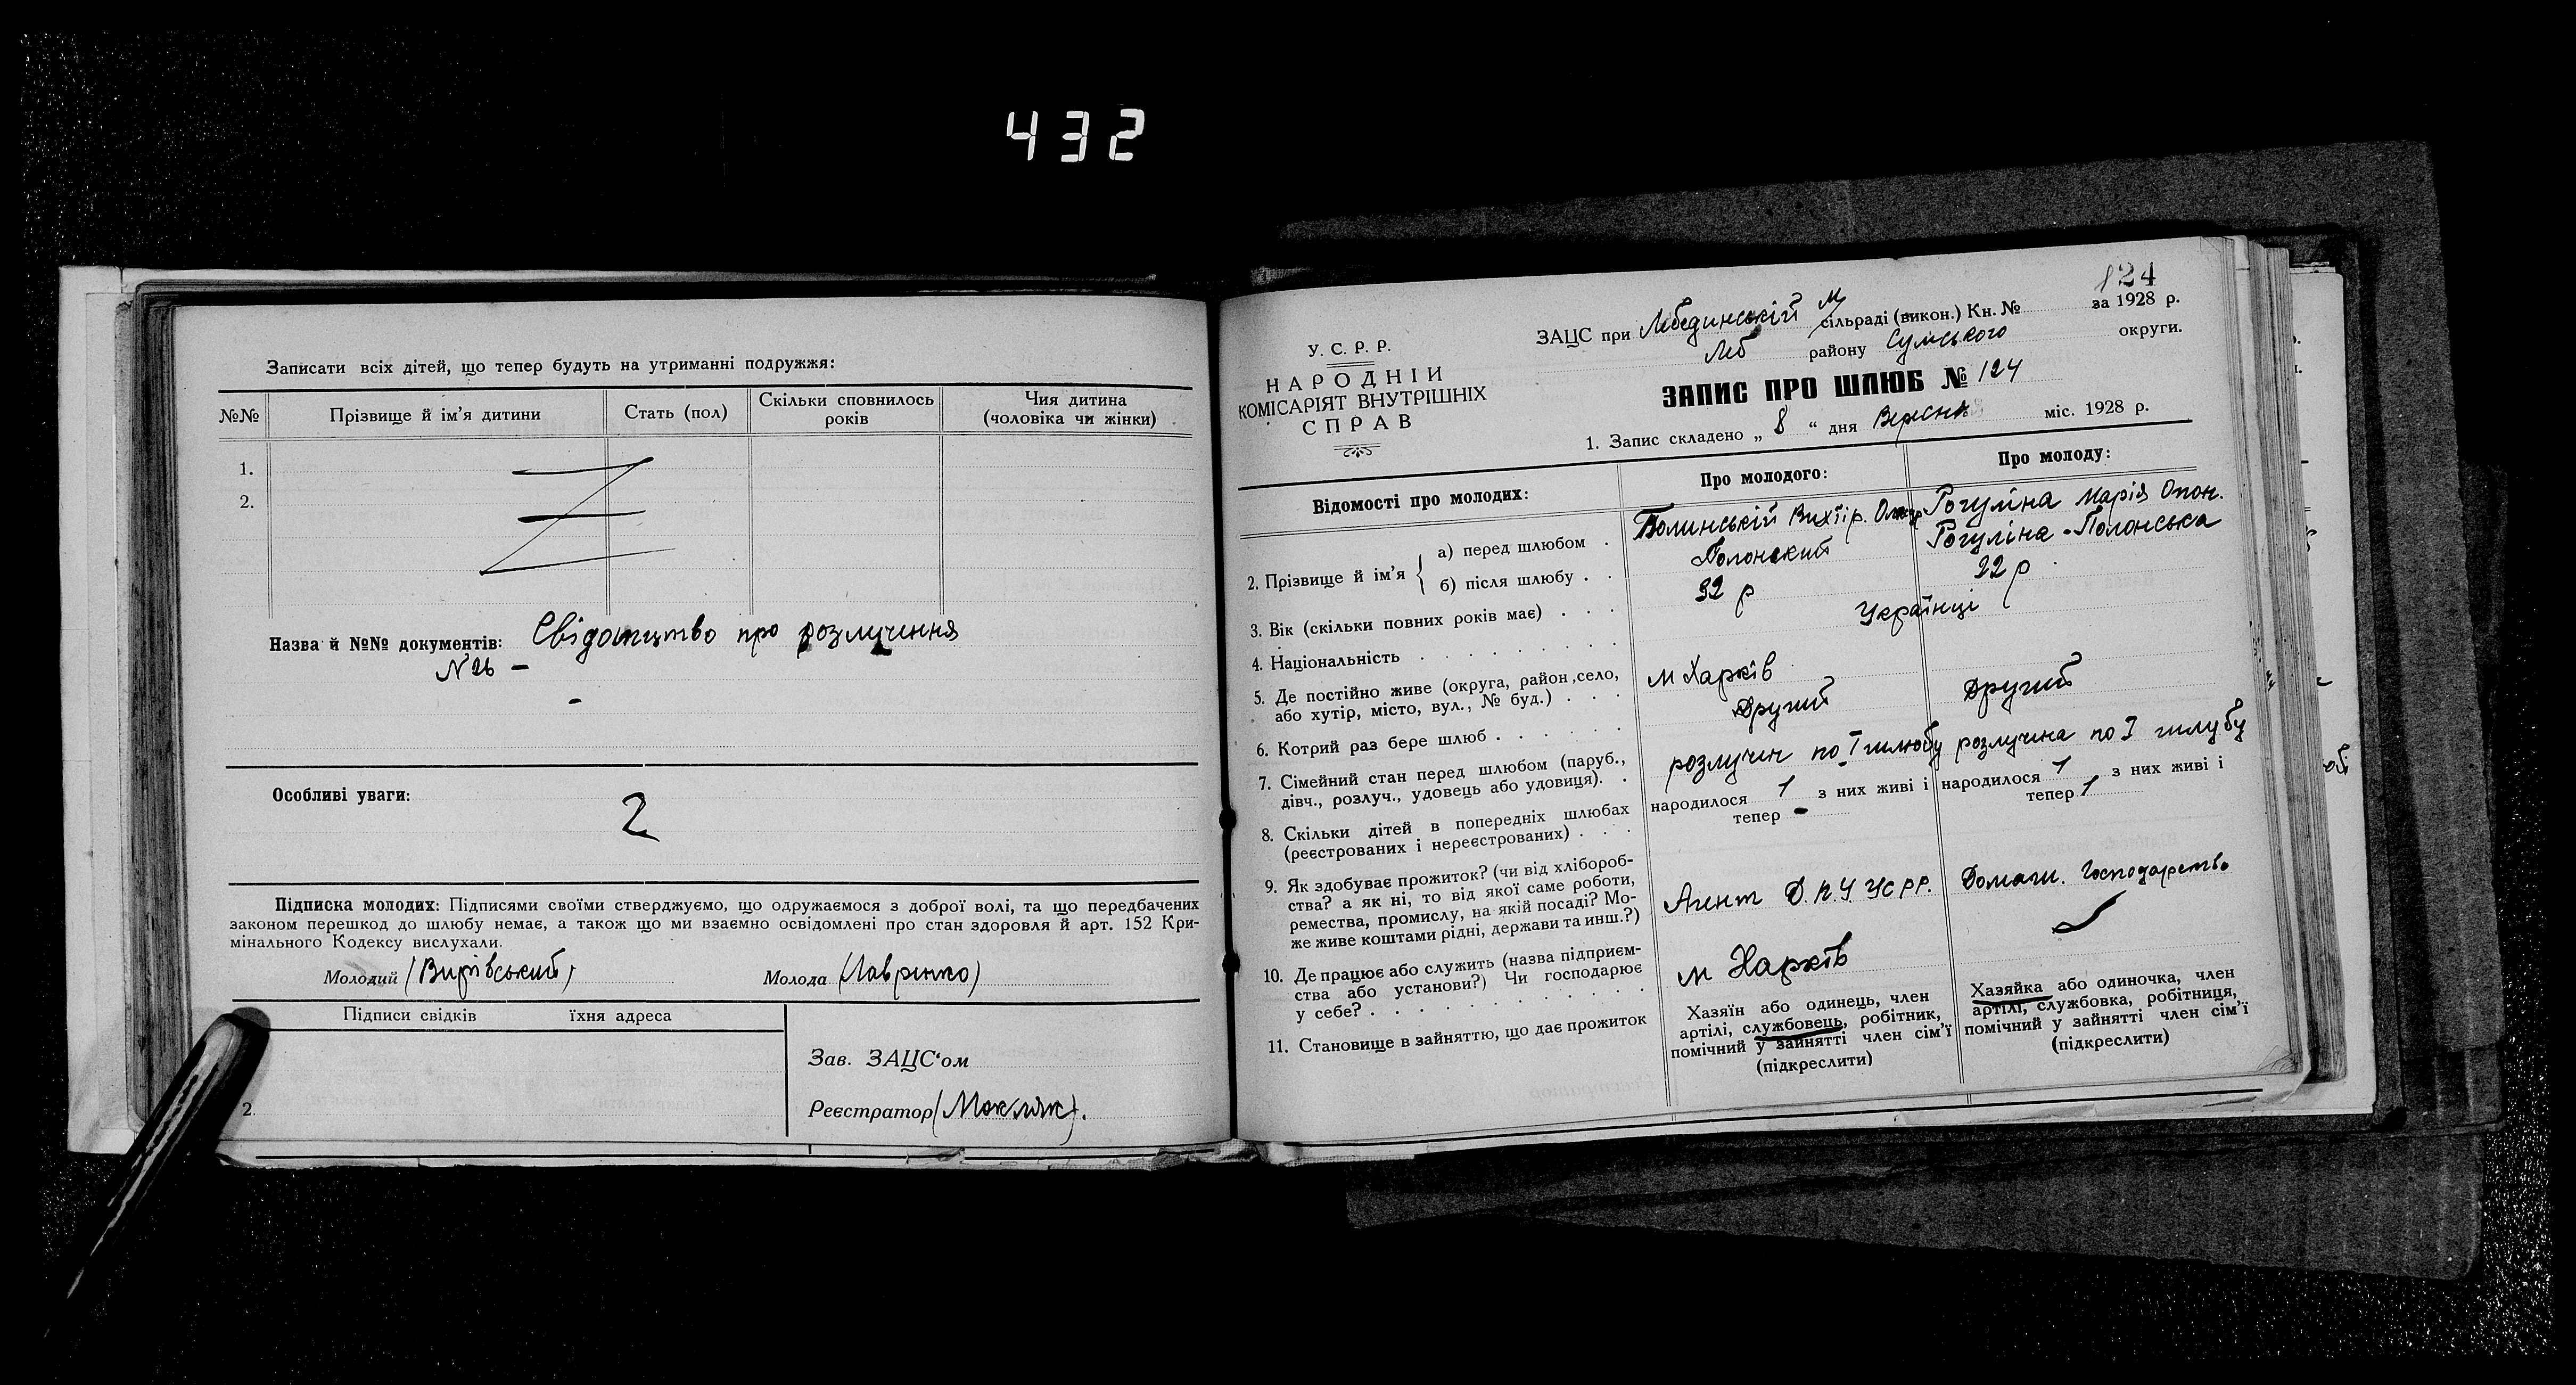 432
Записати всіх дітей, що тепер будуть на утриманні подружжя:
№№ Прізвище й ім'я дитини Стать (пол) Скільки сповнилось років Чия дитина (чоловіка чи жінки)
1.
2.
Назва й №№ документів: Свідоцтво про розлучення
N 26 –
Особливі уваги: 2
Підписка молодих: Підписями своїми стверджуємо, що одружаємося з доброї волі, та що передбачених
законом перешкод до шлюбу немає, а також що ми взаємно освідомлені про стан здоровля й арт. 152 Кри-
мінального Кодексу вислухали.
Молодий (Вирівський) Молода (Лавренко)
Підписи свідків їхня адреса
2.
Зав. ЗАЦС'ом
Реєстратор (Мокляк).
124
У. С. Р. Р.
НАРОДНІЙ
КОМІСАРІЯТ ВНУТРІШНІХ
СПРАВ
ЗАЦС при Лебединській м сільраді (викон.) Кн. № за 1928 р.
Леб району Сумського округи.
ЗАПИС ПРО ШЛЮБ № 124
1. Запис складено „ 8 “ дня Вересня міс. 1928 р.
Відомості про молодих: Про молодого: Про молоду:
2. Прізвище й ім'я
а) перед шлюбом . Рогуліна Марія Опон.
б) після шлюбу . . Полонский Рогуліна - Полонська
3. Вік (скільки повних років має) . . . 32 р 22 р.
4. Національність . . . . . . . . Українці
5. Де постійно живе (округа, район, село,
або хутір, місто, вул., № буд.) . . . м Харків
6. Котрий раз бере шлюб . . . . . . Другий Другий
7. Сімейний стан перед шлюбом (паруб.,
дівч., розлуч., удовець або удовиця). . розлучен по I шлюбу розлучена по I шлубу
8. Скільки дітей в попередніх шлюбах
(реєстрованих і нереєстрованих) . . .
народилося 1 з них живі і тепер –
народилося 1 з них живі і тепер 1
9. Як здобуває прожиток? (чи від хлібороб-
ства? а як ні, то від якої саме роботи,
ремества, промислу, на якій посаді? Мо-
же живе коштами рідні, держави та инш.?)
Агент Д.П.У УСРР. Домашн. Господарство
10. Де працює або служить (назва підприєм-
ства або установи?) Чи господарює
у себе? . . . . . . . . . . м Харків
11. Становище в зайняттю, що дає прожиток
Хазяїн або одинець, член
артілі, службовець, робітник,
помічний у зайнятті член сім'ї
(підкреслити)
Хазяйка або одиночка, член
артілі, службовка, робітниця,
помічний у зайнятті член сім'ї
(підкреслити)